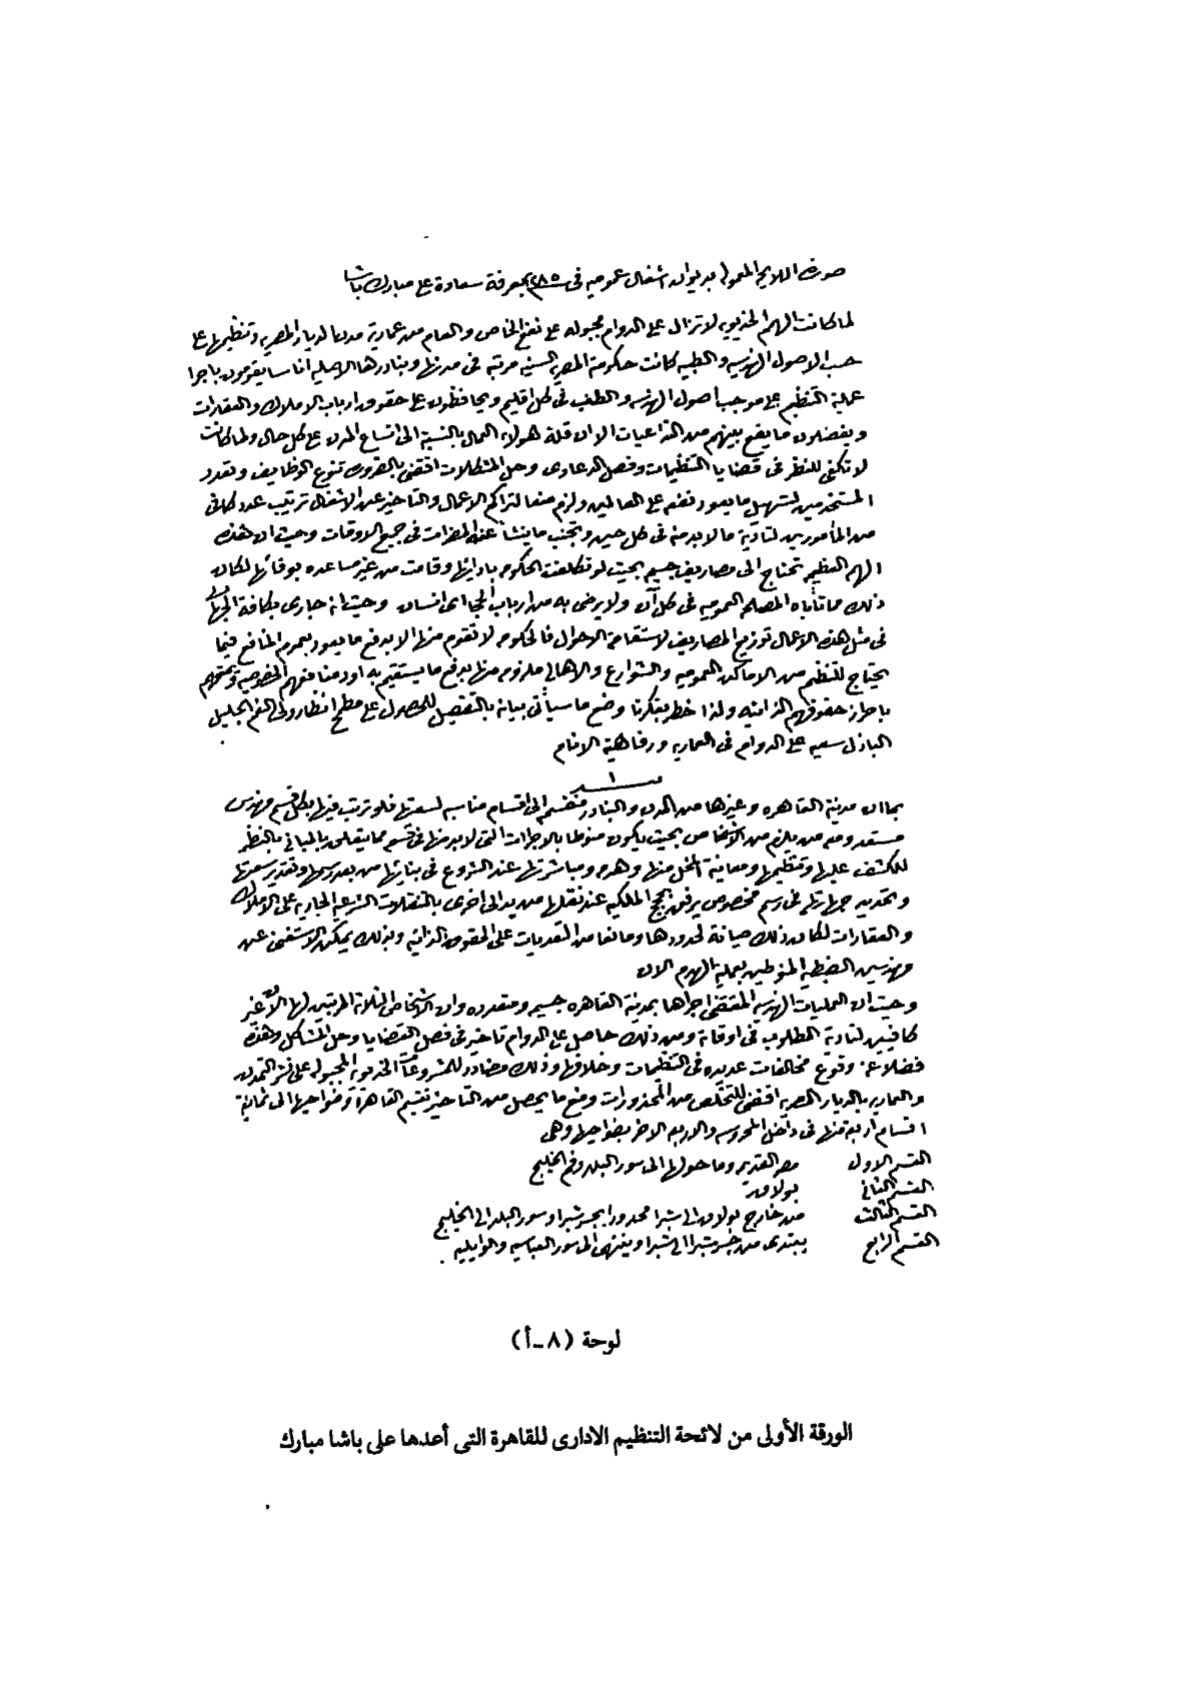 صورة اللايحة المعموله بديوان اشغال عموميه فى ٢٨٥ بمعرفة سعادة على مبارك باشا
لما كانت الهمم الخديويه لا تزال على الدوام مجبوله على نفع الخاص والعام من عمارية مدن الديار المصريه وتنظيمها على
حسب الاصول الهندسيه والطبيه كانت حكومة المصريه السنيه مرتبه فى مدنها وبنادرها الاصليه اناسا يقومون باجرا
عملية التنظيم على موجب اصول الهندسه والطب فى كل اقليم ويحافظون على حقوق ارباب الاملاك والعقارات
ويفصلون ما يقع بينهم من التداعيات الا ان قلة هولاء العمال بالنسبة الى اتساع المدن على كل حال ولما كانت
لا تكفى للنظر فى قضايا التنظيمات وفصل الدعاوى وحل المشكلات اقتضى بالضرورة تنوع الوظايف وتعدد
المستخدمين لتسهيل ما يعود نفعه على العالمين ولزم منعا لتراكم الاعمال والتاخير عن الاشغال ترتيب عدد كافى
من المأمورين لتادية ما لا بد منه فى كل حين وتجنب ما ينشأ عنه المضرات فى جميع الاوقات وحيث ان هذه
الهمم العظيمه تحتاج الى مصاريف جسيمه بحيث لو تكلفت الحكومه بادايها وقامت من غير مساعده بوفائها لكان
ذلك مما تأباه المصلحه العموميه فى كل آن ولا يرضى به من ارباب الحجا اى انسان وحيث انه جارى بكافة الجهات
فى مثل هذه الاعمال توزيع المصاريف لاستقامة الاحوال فالحكومه لا تقوم منها الا بدفع ما يعود بعموم المنافع فيما
يحتاج للتنظيم من الاماكن العموميه والشوارع والاهالى ملزوم منها بدفع ما يستقيم به اود منافعهم الخصوصيه وتمتعهم
باحراز حقوقهم الذاتيه ولذا خطر بفكرنا وضع ما سيأتى بيانه بالتفصيل للحصول على مطمح انظار ولى النعم الجليل
الباذل سعيه على الدوام فى العماريه ورفاهية الانام
١
بما ان مدينة القاهره وغيرها من المدن والبنادر منقسم الى اقسام مناسبه لسعتها فلو ترتب فيها بكل قسم مهندس
مستعد ومعه من يلزم من الاشخاص بحيث يكون منوطا بالاجراات التى لا بد منها فى قسمه مما يتعلق بالمبانى بالنظر
للكشف عليها وتنظيمها ومعاينة المخل منها وهدمه ومباشرتها عند الشروع فى بنايها من بعد رسمها وتقدير سعتها
وتحديد جهاتها فى رسم مخصوص يرفق بحجج الملكيه عند نقلها من يد الى اخرى بالتنقلات الشرعيه الجاريه على الاملاك
والعقارات لكان ذلك صيانة لحدودها ومانعا من التعديات على الحقوق الذاتيه وبذلك يمكن الاستغنى عن
مهندسين الضبطيه المنوطين بعملية الهدم الان
وحيث ان العمليات الهندسيه المقتضى اجراها بمدينة القاهره جسيمه ومتعدده وان الاشخاص الثلاثة المرتبين لها الآن غير
كافيين لتادية المطلوب فى اوقاته ومن ذلك حاصل على الدوام تاخير فى فصل القضايا وحل المشاكل وهذه
فضلا عن وقوع مخالفات عديده فى التنظيمات وخلافها وذلك مضادد للمشروعات الخديويه المجبوله على نشر التمدن
والعماريه بالديار المصريه اقتضى للتخلص من المحذورات ومنع ما يحصل من التاخير تقسيم القاهرة وضواحيها الى ثمانية
اقسام اربعة منها فى داخل المحروسه والاربعه الاخر بضواحيها وهى
القسم الاول مصر القديمه وما حولها الى سور البلد وفم الخليج
القسم الثانى بولاق
القسم الثالث من خارج بولاق الى شبرا محدودا بجسر شبرا وسور البلد الى الخليج
القسم الرابع يبتدى من جسر شبرا الى شبرا وينتهى الى سور العباسيه والوايليه
لوحة (٨ـأ)
الورقة الأولى من لائحة التنظيم الادارى للقاهرة التى أعدها على باشا مبارك